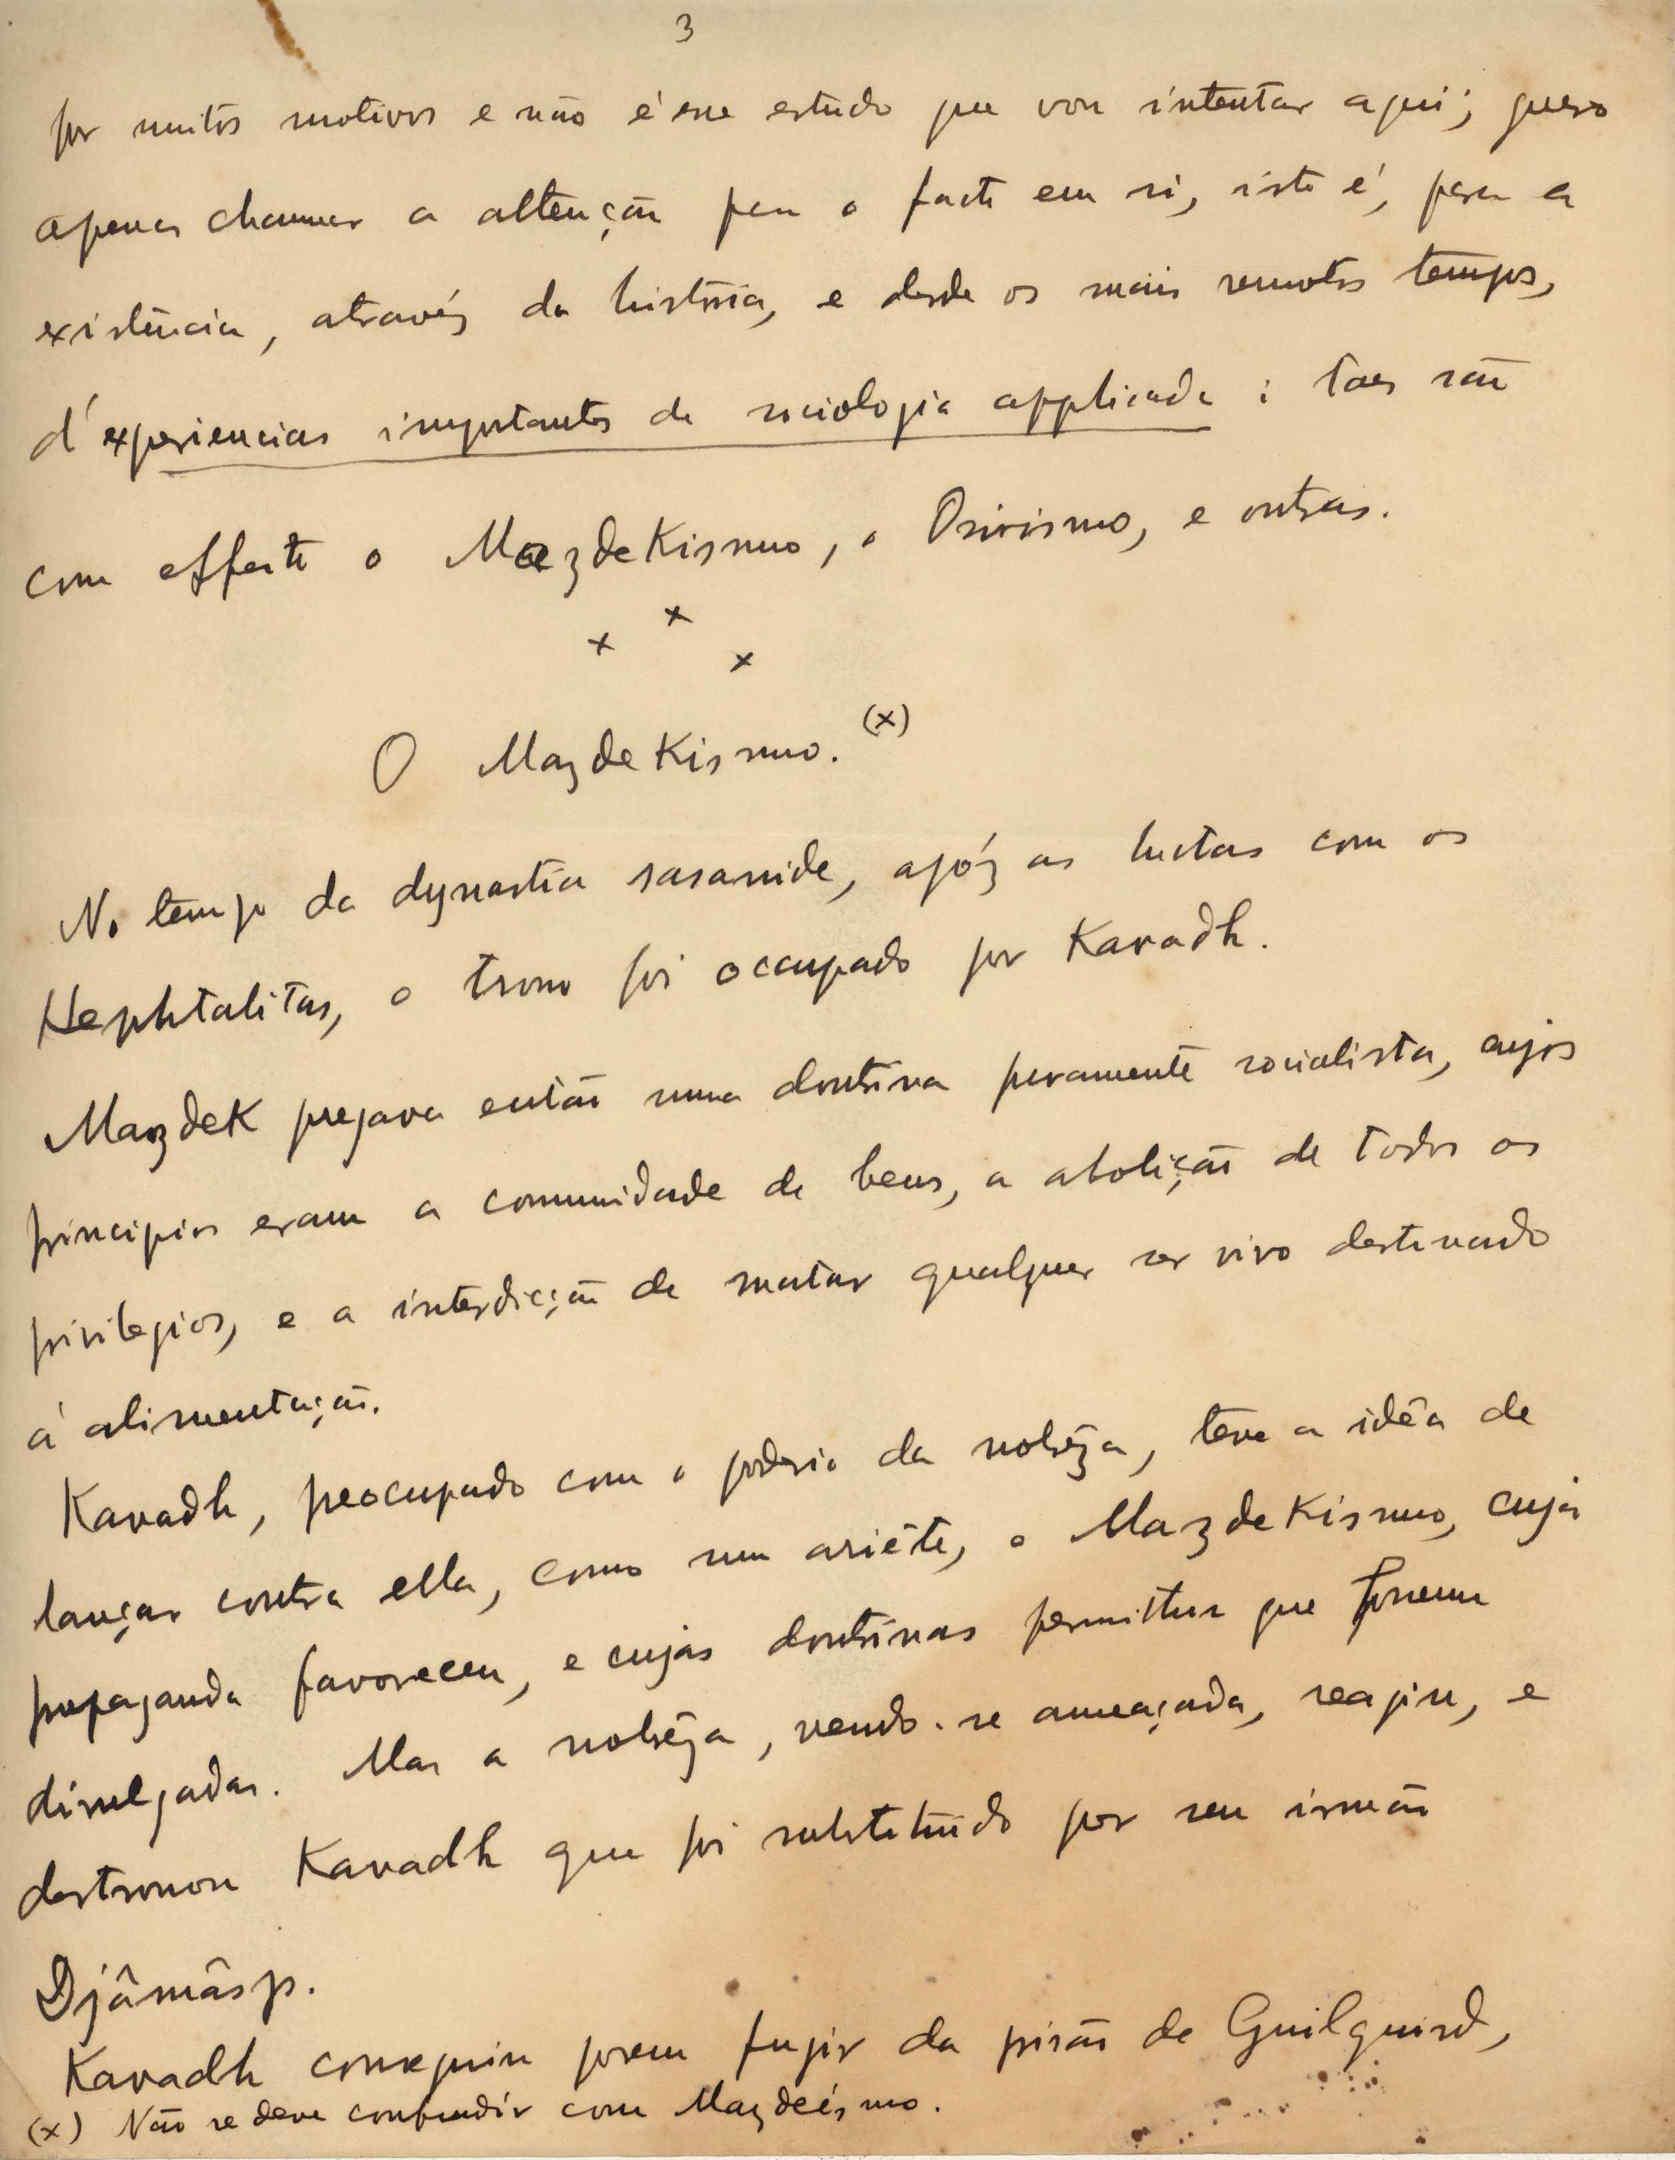 3
por muitos motivos e não é esse estudo que vou intentar aqui; quero
apenas chamar a attenção para o facto em si, isto é, para a
existência, através da história, e desde os mais remotos tempos,
d'experiencias importantes de sociologia applicada: taes são
com effeito o Mazdekismo, o Osirismo, e outras.
x x x
O Mazdekismo. (x)
No tempo da dynastia sasanide, apóz as luctas com os
Hephtalitas, o trono foi occupado por Kavadh.
Mazdek pregava então uma doutrina puramente socialista, cujos
principios eram a comunidade de bens, a abolição de todos os
privilegios, e a interdicção de matar qualquer ser vivo destinado
á alimentação.
Kavadh, preocupado com o poderio da nobrêza, teve a idêa de
lançar contra ella, como um ariéte, o Mazdekismo, cuja
propaganda favoreceu, e cujas doutrinas permittiu que fossem
divulgadas. Mas a nobrêza, vendo-se ameaçada, reagiu, e
destronou Kavadh que foi substituido por seu irmão
Djâmâsp.
Kavadh conseguiu porem fugir da prisão de Guilguird,
(x) Não se deve confundir com Mazdeismo.